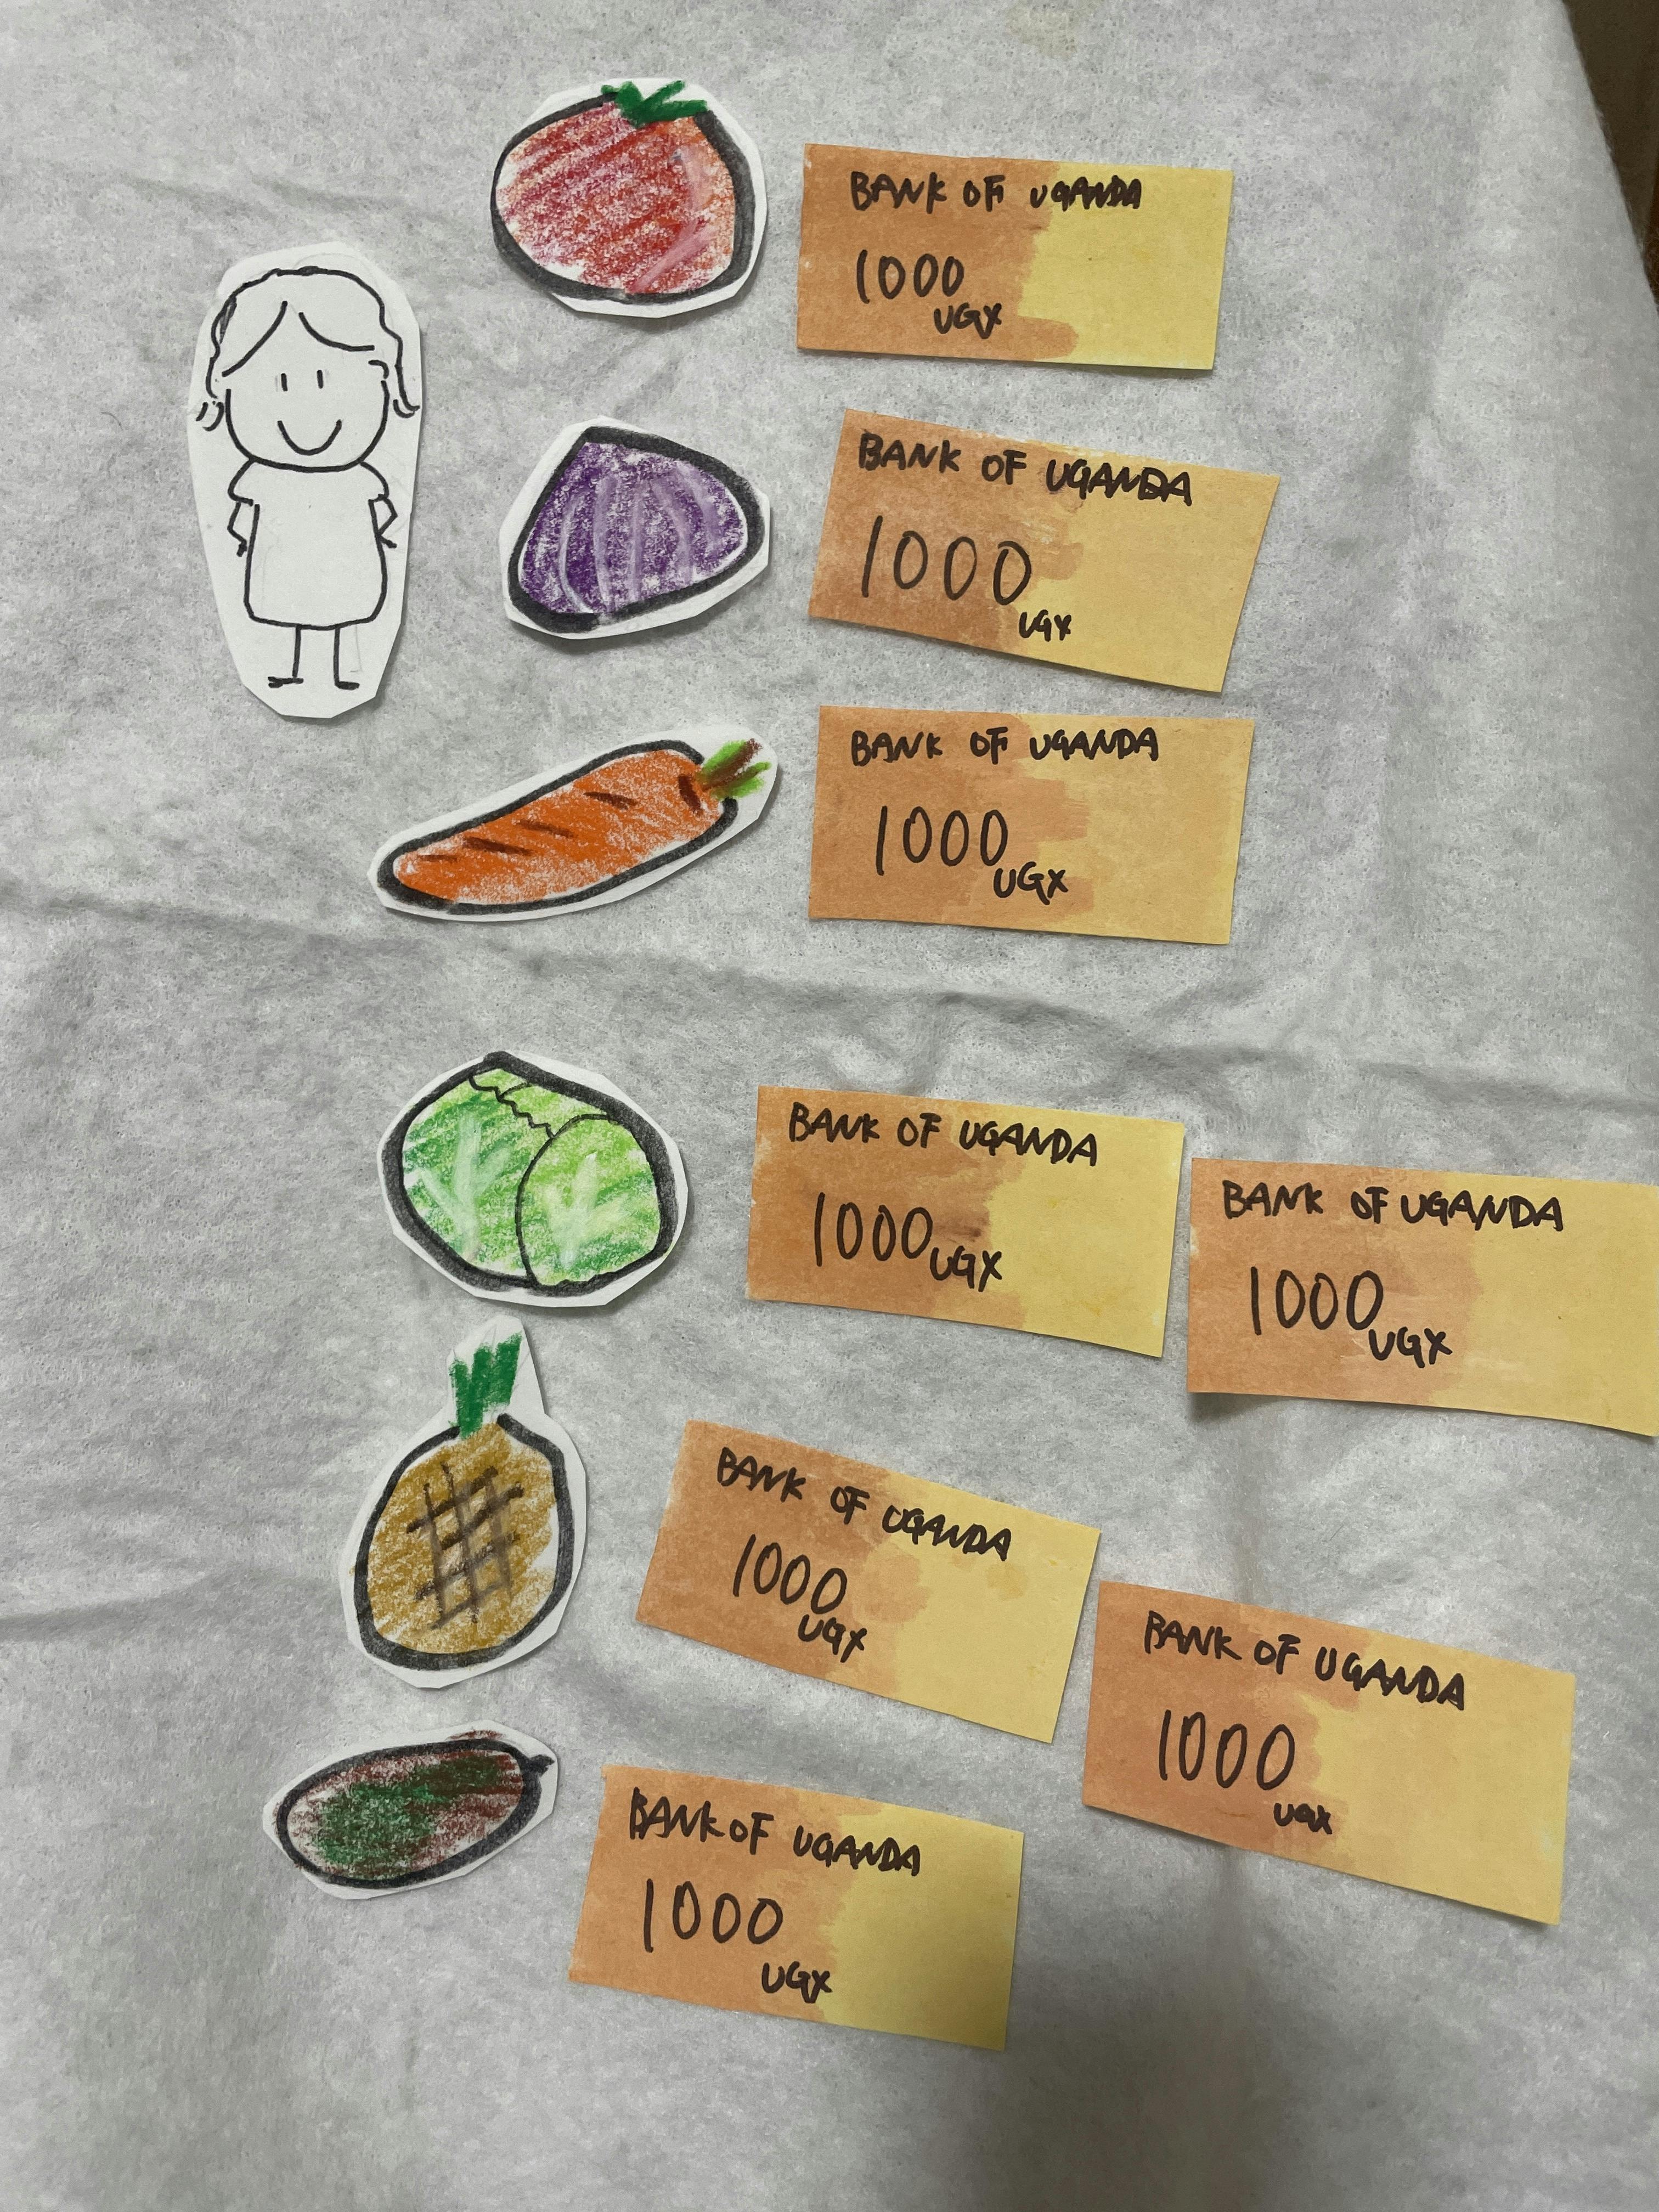 BANK OF UGANDA
1000
UGX
BANK OF UGANDA
1000
UGX
BANK OF UGANDA
1000
UGX
BANK OF UGANDA
1000
UGX
BANK OF UGANDA
1000
UGX
BANK OF UGANDA
1000
UGX
BANK OF UGANDA
1000
UGX
BANK OF UGANDA
1000
UGX